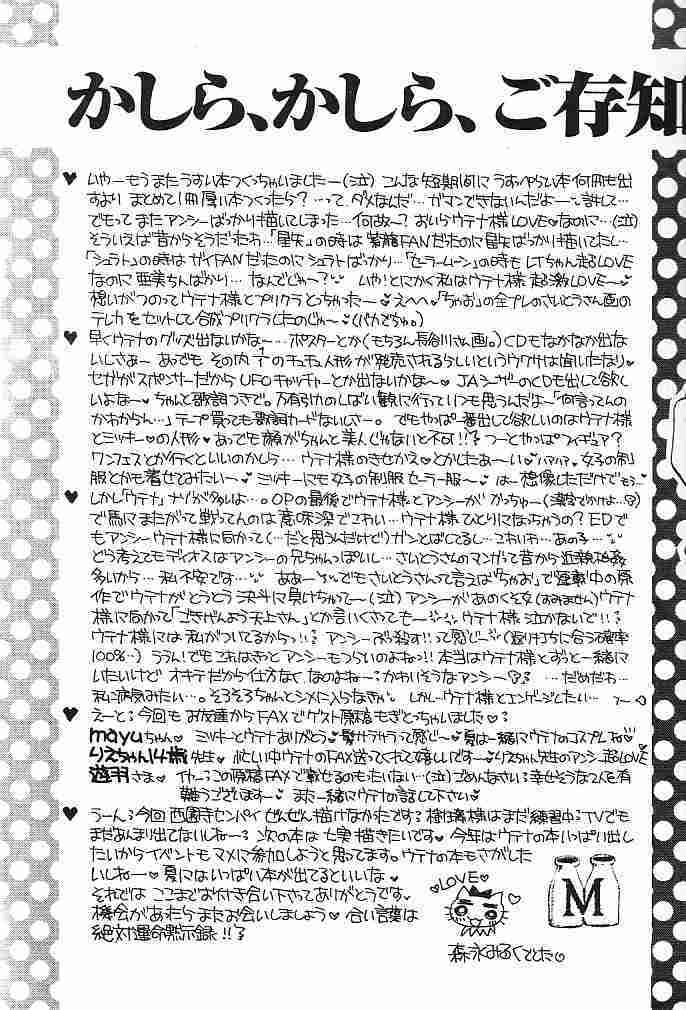 かしら、かしら、ご存知
♥ いやーもうまたうすい本つくっちゃいましたー(泣) こんな短期間にうすっぺらい本何冊も出
すより まとめて1冊厚い本つくったら？…って ダメなんだ…ガマンできないんだよー…許して…
でもって またアンシーばっかり描いてしまった…何故〜？おいらウテナ様LOVE♥なのに…(泣)
そういえば昔からそうだったわ…「星矢」の時は 紫龍FANだったのに星矢ばっかり描いてたし…
「シュラト」の時はガイFANだったのに シュラトばかり…「セーラームーン」の時も LTちゃん超LOVE
なのに 亜美ちんばかり… なんでじゃ〜？ いや！とにかく私はウテナ様 超激LOVE〜♥
想いがつのって ウテナ様とプリクラ とっちった〜♥えへへ♥「ちゃお」の全プレのさいとうさん画の
テレカをセットして合成プリクラしたのじゃ〜♥(バカでちゅ。)
♥ 早くウテナのグッズ出ないかな〜…ポスターとか(もちろん長谷川さん画。) CDもなかなか出な
いしさぁー あっでも その内 チュチュ人形が発売されるらしいというウワサは聞いたなり♥
セガがスポンサーだから UFOキャッチャーとか出ないかな〜♥ JAシーザーのCDも出して欲し
いよな〜♥ちゃんと歌詞つきで。万有引力のしばい観に行っていつも思うんだよー「何言ってんの
かわからん…」テープ買っても歌詞カードないしさー。でもやっぱ一番出して欲しいのはウテナ様
とミッキー♥の人形♥あっでも顔がちゃんと美人じゃないと不可!! つーとやっぱフィギュア？
ワンフェスとか行くといいのかしら…ウテナ様のきせかえ♥とかしたあーい♥ハァハァ 女子の制
服とかも着せてみたいー♥ミッキーにも女子の制服 セーラー服〜♥は…想像しただけでもう…
♥ しかし「ウテナ」ナゾが多いよ…。OPの最後でウテナ様とアンシーが がっちゅー(漢字でかけよ…)
で馬にまたがって戦ってんのは 意味深でこわい…ウテナ様ひとりになっちゃうの？ EDで
もアンシー ウテナ様に向かって(…だと思うんだけど) ガンとばしてるし…こわいわ…あの子…
どう考えてもディオスはアンシーの兄ちゃんっぽいし…さいとうさんのマンガって昔から近親相姦
多いから…私 不安です… ああー！でもさいとうさんって言えば「ちゃお」で連載中の原
作でウテナがとうとう決斗に負けちゃって〜(泣) アンシーがあのくそ女(すみません)ウテナ
様に向かって「ごきげんよう 天上さん」とか言いくさってもー ウテナ様 泣かないで!!
ウテナ様には私がついてるから!! アンシーぶっ殺す!!って感じー (返り討ちに合う確率
100%…) ううん！でもこれはきっとアンシーもつらいのよねっ!! 本当はウテナ様とずっと一緒に
いたいけど オキテだから仕方なく…なのよねー かわいそうなアンシー …だめだわ…
私に病気みたい…。そろそろちゃんとシメに入らなきゃ。しかしーウテナ様とエンゲージしたい…
♥ えーと 今回も お友達からFAXでゲスト原稿もぎとっちゃいました♥
mayuちゃん♥ ミッキーとウテナありがとう♥髪サラサラって感じ〜♥夏は一緒にウテナのコスプレね♥
りえちゃん14歳先生♥ 忙しい中ウテナのFAX送ってくれて嬉しいです〜♥りえちゃん先生のアンシー超LOVE♥
遊羽さま♥ イヤー この原稿 FAXで載せるのもったいない…(泣) ごめんなさい 幸せそうな2人を有
難うございます〜♥ また一緒にウテナの話して下さい♥
♥ うーん 今回 西園寺センパイ ぜんぜん描けなかったです 樹璃様はまだ練習中 TVでも
まだあんまり出てないしね〜 次の本は 七実描きたいです♥ 今年はウテナの本いっぱい出し
たいから イベントも マメに参加しようと思ってます。ウテナの本もさがした
いしねー♥夏にはいっぱい本が出てるといいな♥
それでは ここまでお付き合い下さってありがとうです♥
機会があったら またお会いしましょう♥ 合い言葉は
絶対運命黙示録!!
♥LOVE♥
M
森永みるくでした♥